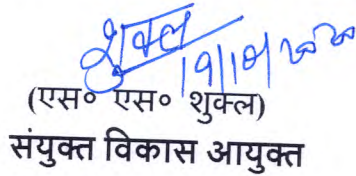 शुक्ल
19/10/
(एस० एस० शुक्ल)
संयुक्त विकास आयुक्त